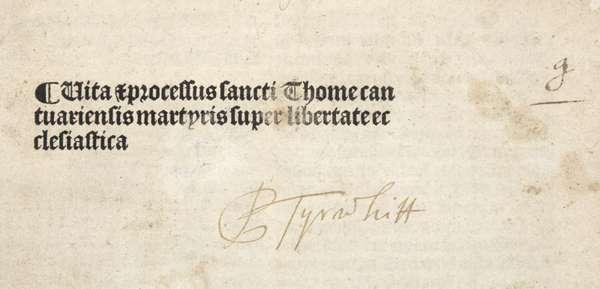 ¶ Uita ⁊ processus sancti Thome can
tuariensis martyris super libertate ec
clesiastica
g
B Tyrwhitt